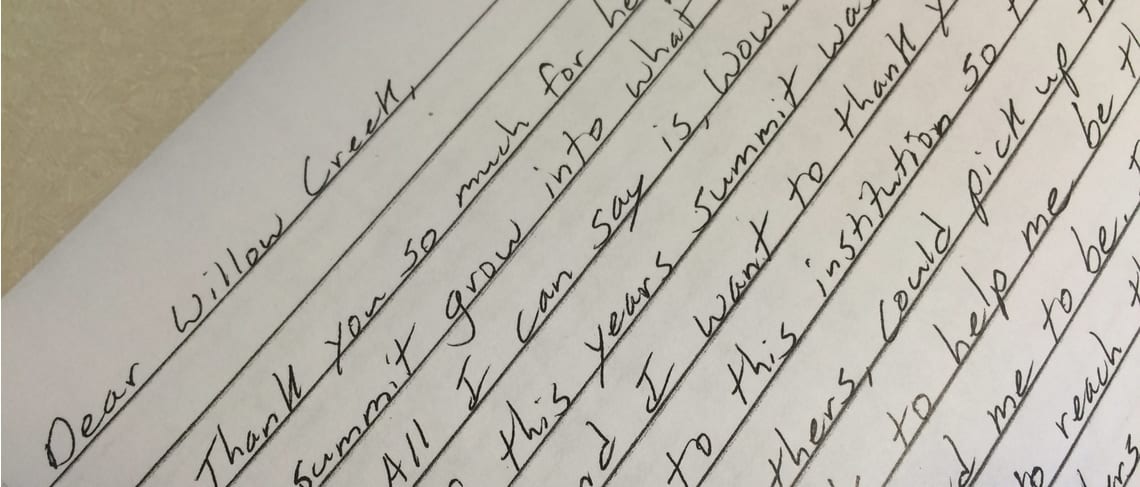 Dear Willow Creek,
Thank you so much for
summit grow into what
All I can say is, wow.
this years summit
I want to thank
to this institution so
thers, could pick up
to help me be
me to be
reach